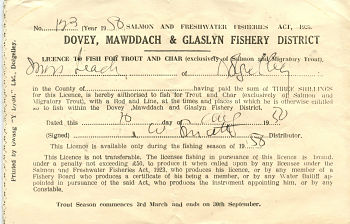 No. 123 (Year 1950 SALMON AND FRESHWATER FISHERIES ACT, 1923.
DOVEY, MAWDDACH & GLASLYN FISHERY DISTRICT
LICENCE TO FISH FOR TROUT AND CHAR (exclusively of Salmon and Migratory Trout).
Miss Leach of Dolgelley
in the County of having paid the sum of THREE SHILLINGS
for this Licence, is hereby authorised to fish for Trout and Char (exclusively of Salmon and
Migratory Trout), with a Rod and Line, at the times and places at which he is otherwise entitled
so to fish within the Dovey, Mawddach and Glaslyn Fishery District.
Dated this day of 1950
(Signed) Distributor.
This Licence is only available during the fishing season of 1950
This Licence is not transferable. The licensee fishing in pursuance of this licence is bound,
under a penalty not exceeding £50, to produce it when called upon by any licensee under the
Salmon and Freshwater Fisheries Act, 1923, who produces his licence, or by any member of a
Fishery Board who produces a certificate of his being a member, or by any Water Bailiff ap-
pointed in pursuance of the said Act, who produces the instrument appointing him, or by any
Constable.
Trout Season commences 3rd March and ends on 30th September.
Printed by Hughes "Y Dydd", Ltd., Dolgelley.